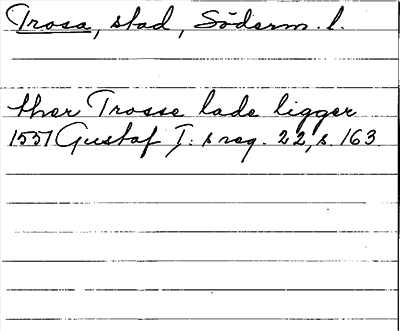 Trosa, stad, Söderm. l.
ther Trosse lade ligger
1557 Gustaf I:s reg. 22, s. 163